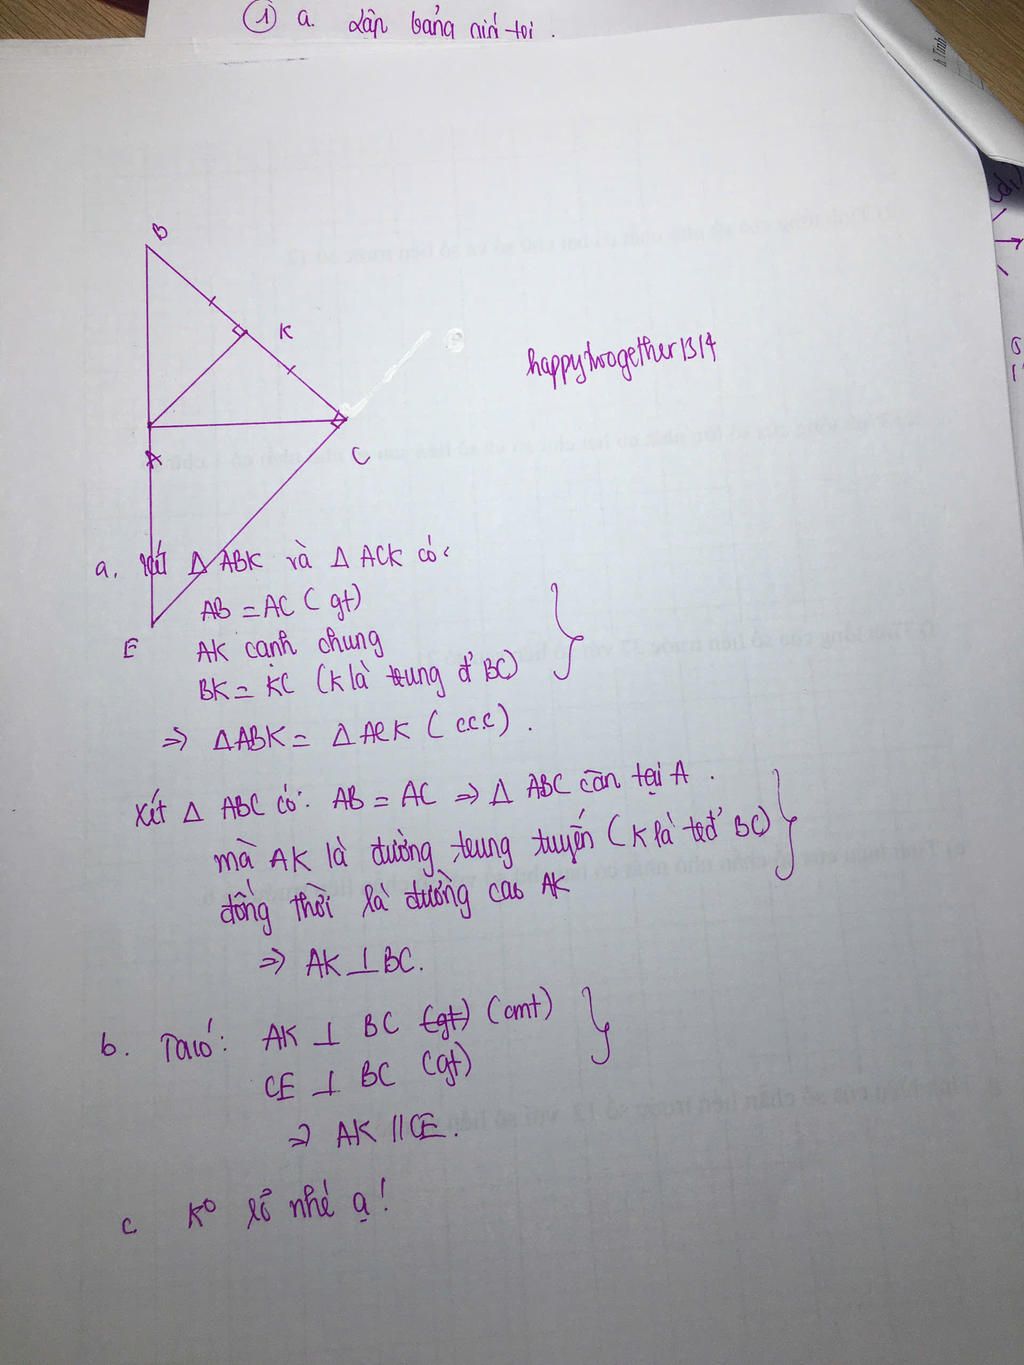 ① a. Lập bảng
B
K
happytwogether1314
A
C
a. Xét Δ ABK và Δ ACK có:
AB = AC (gt)
E
AK cạnh chung
BK = KC (K là trung đ' BC)
⇒ ΔABK = Δ ACK (c.c.c).
Xét Δ ABC có: AB = AC ⇒ Δ ABC cân tại A.
mà AK là đường trung tuyến (K là tđ' BC)
đồng thời là đường cao AK
⇒ AK ⊥ BC.
b. Ta có: AK ⊥ BC (gt) (cmt)
CE ⊥ BC (gt)
⇒ AK // CE.
c K° rõ nhé ạ!